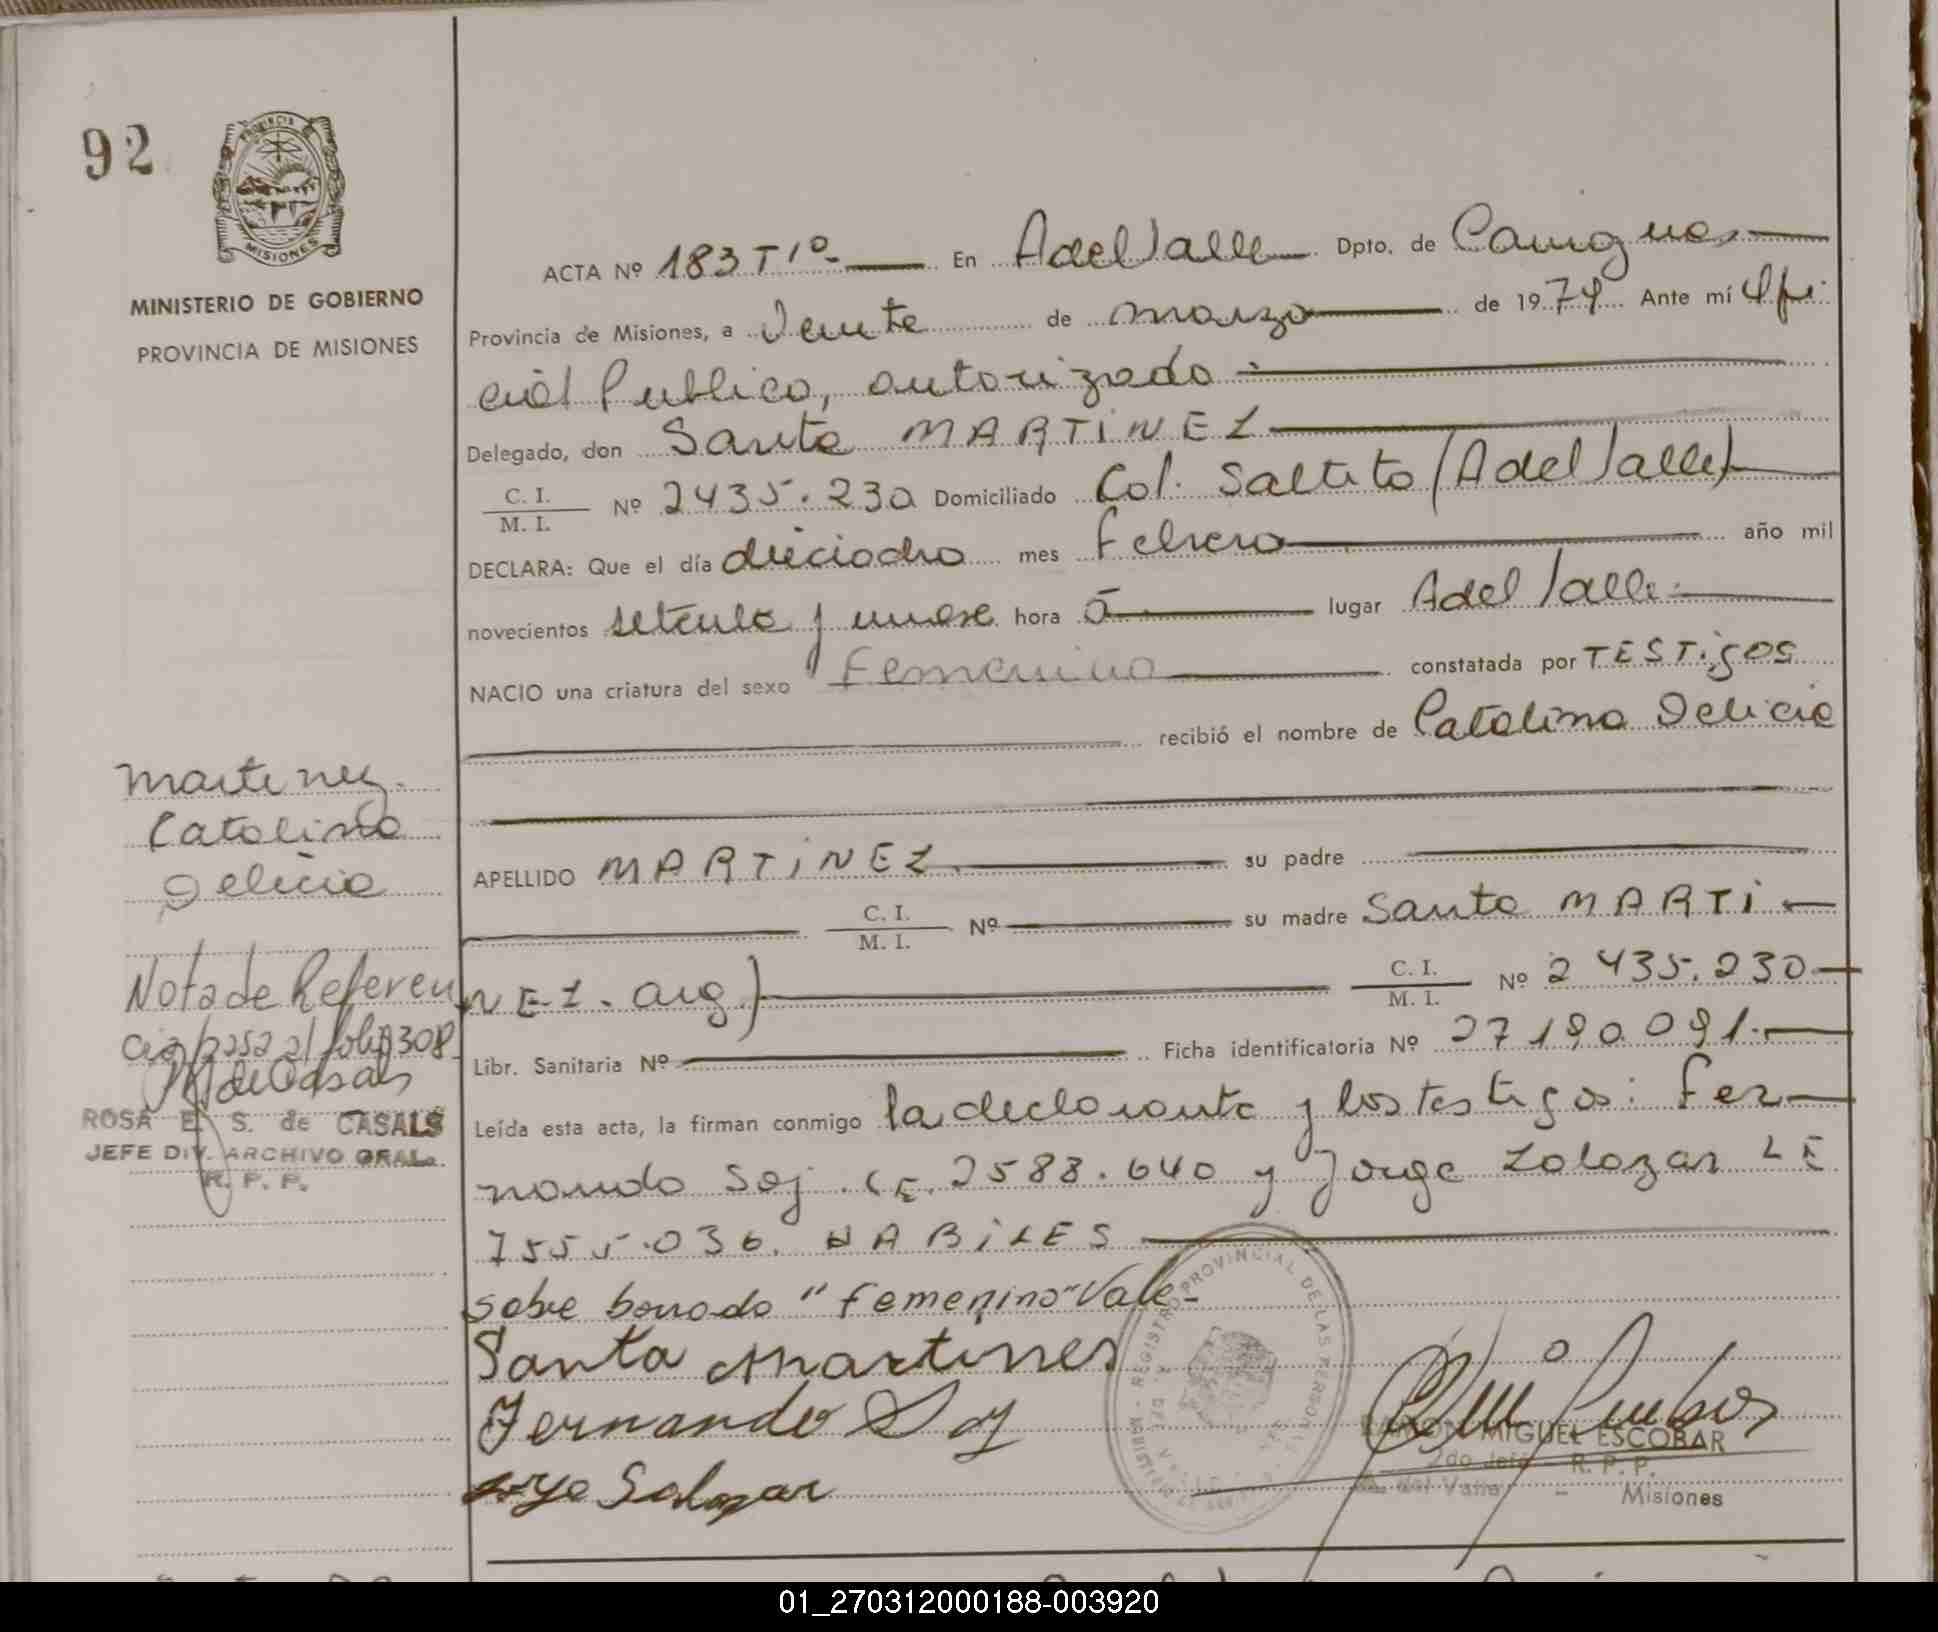 92
PROVINCIA
MISIONES
MINISTERIO DE GOBIERNO
PROVINCIA DE MISIONES
ACTA Nº 183 T 1º En A del Valle Dpto. de Cainguas
Provincia de Misiones, a Veinte de marzo de 1979 Ante mí Ofi
cial Publico, autorizado
Delegado, don Santa MARTINEZ
C. I.
M. I. Nº 2435.230 Domiciliado Col. Saltito (A del Valle)
DECLARA: Que el día dieciocho mes Febrero año mil
novecientos setenta y nueve hora 5 lugar A del Valle
NACIO una criatura del sexo Femenino constatada por TESTigos
recibió el nombre de Catalina Delicia
Martinez
Catalina
Delicia
APELLIDO MARTINEZ su padre
C. I.
M. I. Nº su madre Santa MARTI
NEZ. arg) C. I.
M. I. Nº 2435.230
Nota de Referen
cia pasa al folio 308
ROSA E. S. de CASALS
JEFE DIV. ARCHIVO GRAL.
R. P. P.
Libr. Sanitaria Nº Ficha identificatoria Nº 27190.091.
Leída esta acta, la firman conmigo la declarante y los testigos: Fer
nando Soj. LE. 2588.640 y Jorge Zalazar LE
7555.036. HABILES
sobre borrado "femenino" Vale-
Santa Martines
Fernando Soj
Salazar
REGISTRO PROVINCIAL DE LAS PERSONAS
RAMON MIGUEL ESCOBAR
2do Jefe - R. P. P.
A. del Valle - Misiones
01_270312000188-003920